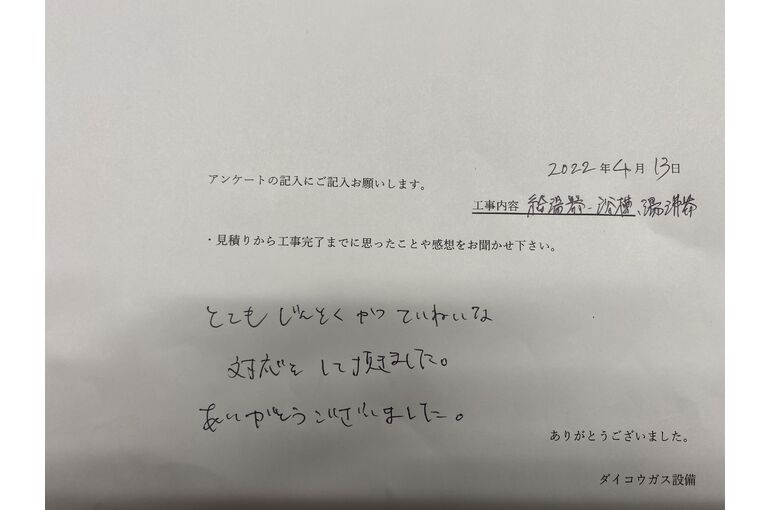 2022年4月13日
アンケートの記入にご記入お願いします。
工事内容 給湯器-浴槽、湯沸器
・見積りから工事完了までに思ったことや感想をお聞かせ下さい。
とても じんそく かつ ていねいな
対応を して頂きました。
ありがとうございました。
ありがとうございました。
ダイコウガス設備